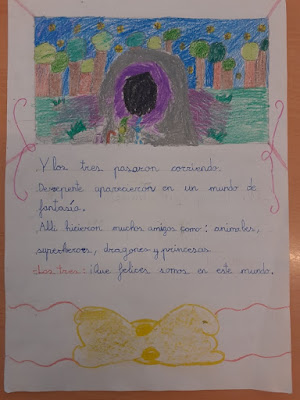 Y los tres pasaron corriendo.
De repente aparecieron en un mundo de
fantasía.
Allí hicieron muchos amigos como: animales,
superheroes, dragones y princesas.
Los tres: ¡Que felices somos en este mundo.